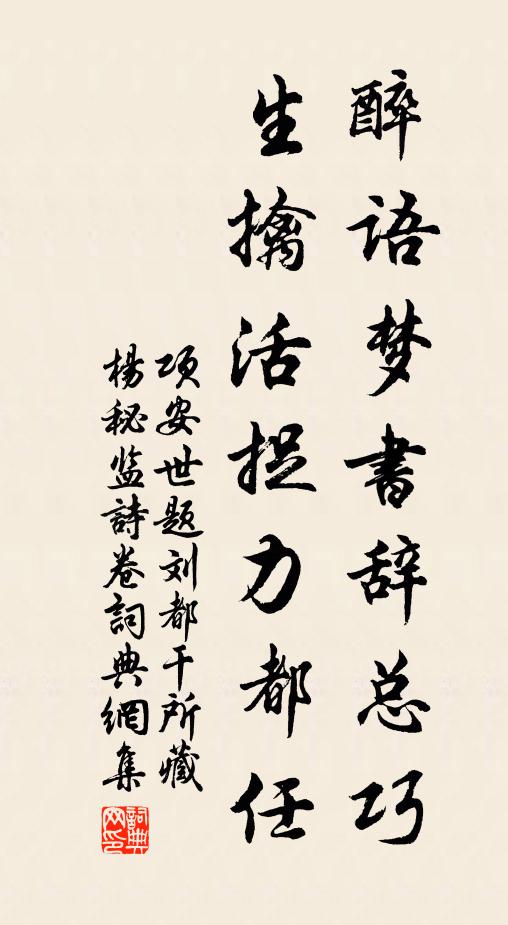 醉语梦書辞总巧
生擒活捉力都任
项安世题刘都干所藏
楊秘监詩卷詞典網集
詞典网印